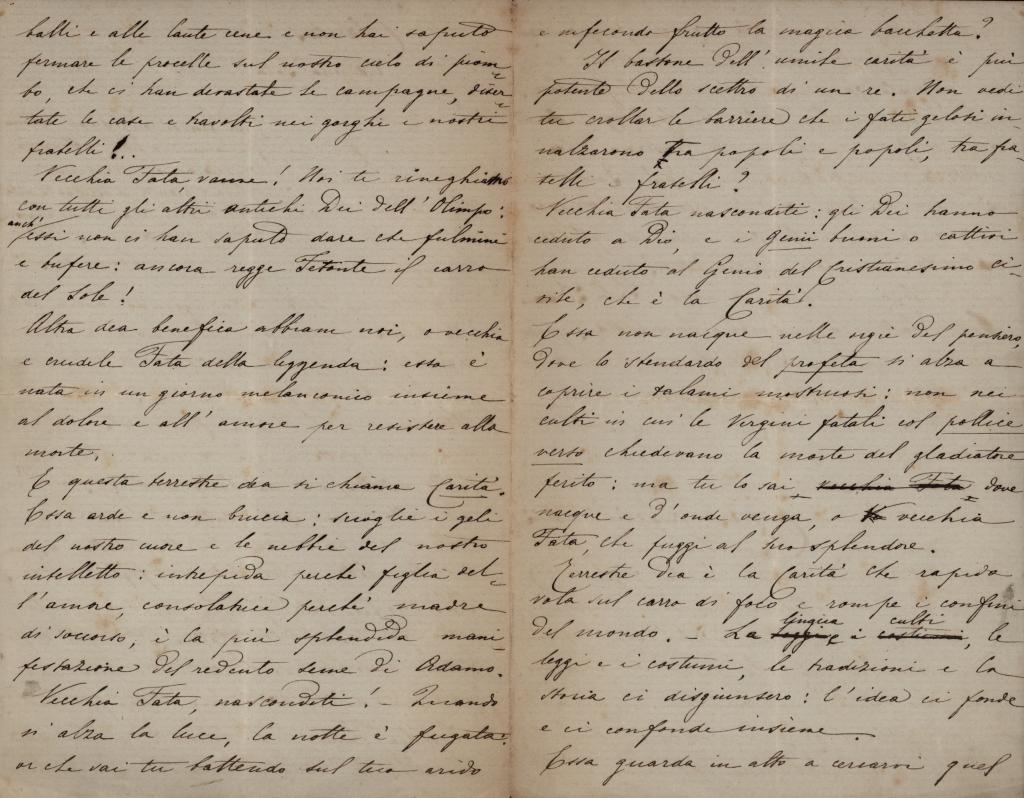 balli e alle laute cene e non hai saputo
fermare le procelle sul nostro cielo di piom-
bo, che ci han devastate le campagne, diser-
tate le case e travolti nei gorghi i nostri
fratelli!..
Vecchia Fata, vanne! Noi ti rineghiamo
con tutti gli altri antichi Dei dell'Olimpo:
anch'essi non ci han saputo dare che fulmini
e bufere: ancora regge Fetonte il carro
del Sole!
Altra dea benefica abbiam noi, o vecchia
e crudele Fata della leggenda: essa è
nata in un giorno melanconico insieme
al dolore e all'amore per resistere alla
morte.
E questa terrestre dea si chiama Carità.
Essa arde e non brucia: scioglie i geli
del nostro cuore e le nebbie del nostro
intelletto: intrepida perchè figlia del-
l'amore, consolatrice perchè madre
di soccorso, è la più splendida mani-
festazione del redento seme di Adamo.
Vecchia Fata, nasconditi! - Quando
si alza la luce, la notte è fugata:
or che vai tu battendo sul tuo arido
e infecondo frutto la magica bacchetta?
Il bastone dell'umile carità è più
potente dello scettro di un re. Non vedi
tu crollar le barriere che i fati gelosi in-
nalzarono tra popoli e popoli, tra fra-
telli e fratelli?
Vecchia Fata nasconditi: gli Dei hanno
ceduto a Dio, e i Genii buoni o cattivi
han ceduto al Genio del Cristianesimo ci-
vile, che è la Carità.
Essa non nacque nelle orgie del pensiero,
dove lo stendardo del profeta si alza a
coprire i talami mostruosi: non nei
culti in cui le Vergini fatali col pollice
verso chiedevano la morte del gladiatore
ferito: ma tu lo sai, vecchia Fata, dove
nacque e d'onde venga, o vecchia
Fata, che fuggi al suo splendore.
Terrestre Dea è la Carità che rapida
vola sul carro di foco e rompe i confini
lingua culti
del mondo. - La legge e i costumi, le
leggi e i costumi, le tradizioni e la
storia ci disgiunsero: l'idea ci fonde
e ci confonde insieme.
Essa guarda in alto a cercarvi quel